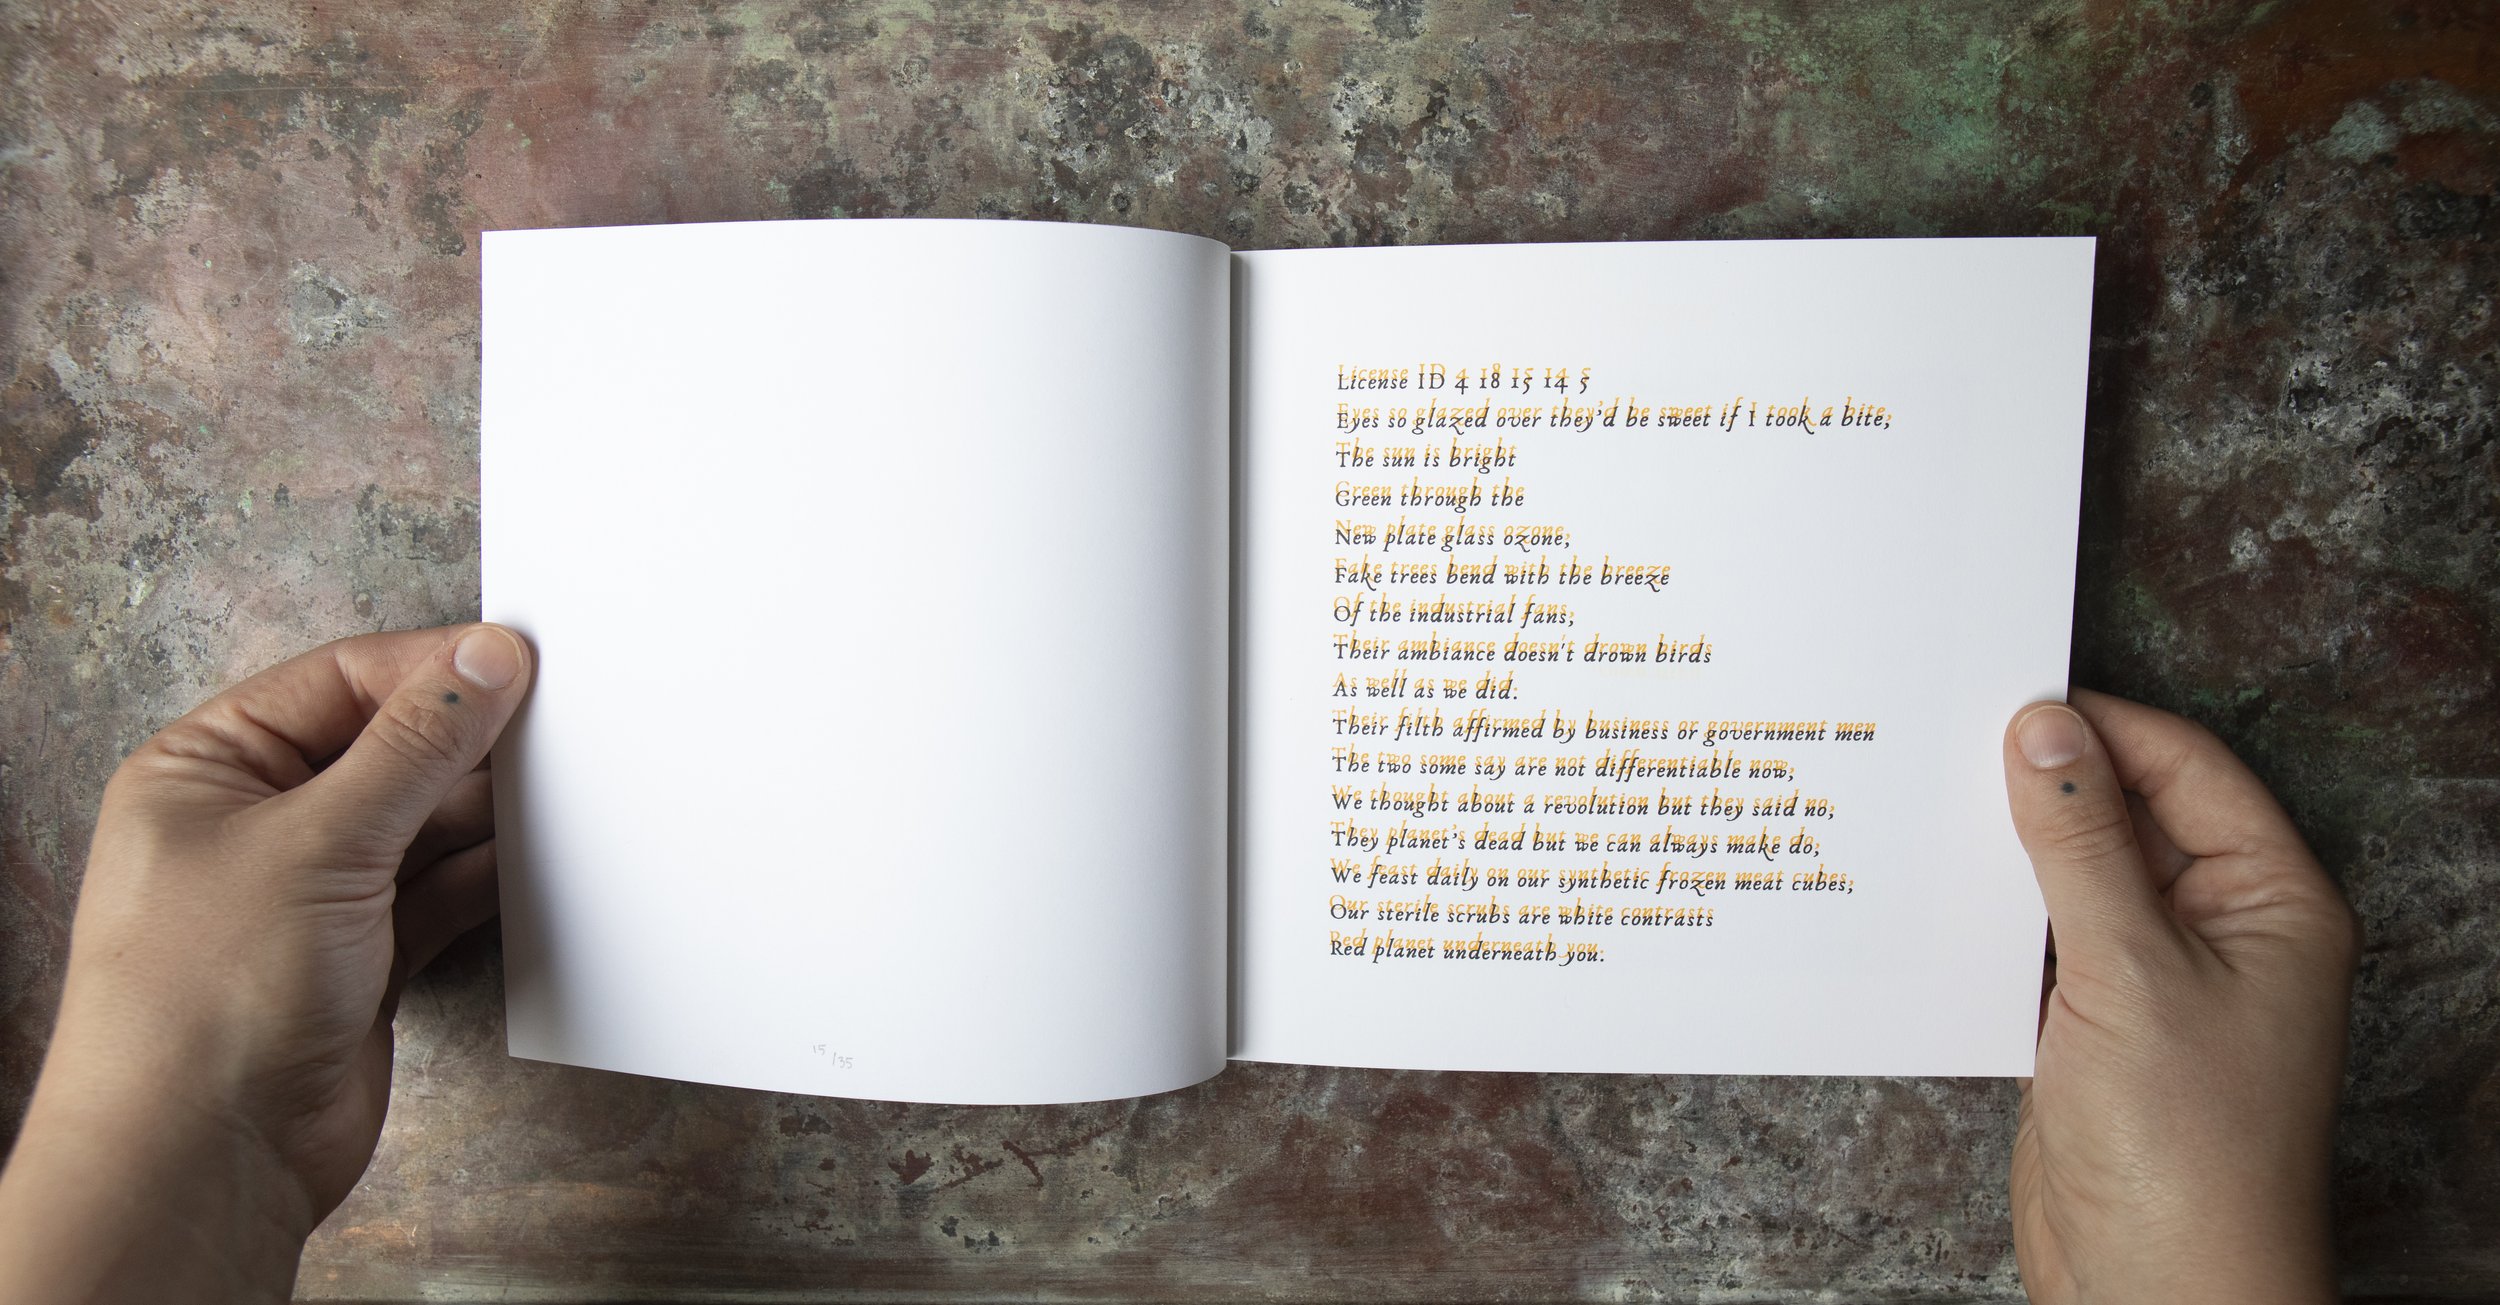 15/35
License ID 4 18 15 14 5
Eyes so glazed over they'd be sweet if I took a bite,
The sun is bright
Green through the
New plate glass ozone,
Fake trees bend with the breeze
Of the industrial fans,
Their ambiance doesn't drown birds
As well as we did.
Their filth affirmed by business or government men
The two some say are not differentiable now,
We thought about a revolution but they said no,
They planet's dead but we can always make do,
We feast daily on our synthetic frozen meat cubes,
Our sterile scrubs are white contrasts
Red planet underneath you.